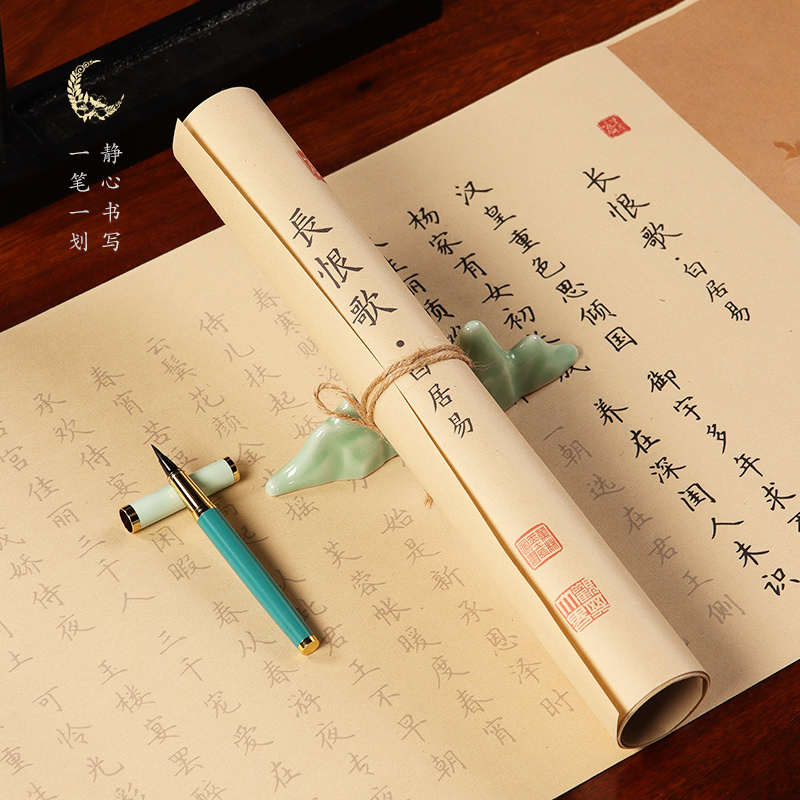 静心书写
一笔一划
長恨歌·白居易
长恨歌·白居易
汉皇重色思倾国 御宇多年求
杨家有女初 成 养在深闺人未识
丽质 一朝选在君王侧
春寒赐
侍儿扶起娇 力 始是新承恩泽时
云鬓花颜金 摇 芙蓉帐暖度春宵
春宵苦 此君王不早朝
承欢侍宴 闲暇 春从春游夜专
宫佳丽三千人 三千宠爱在
成娇侍夜 玉楼宴罢醉
可怜光彩
重